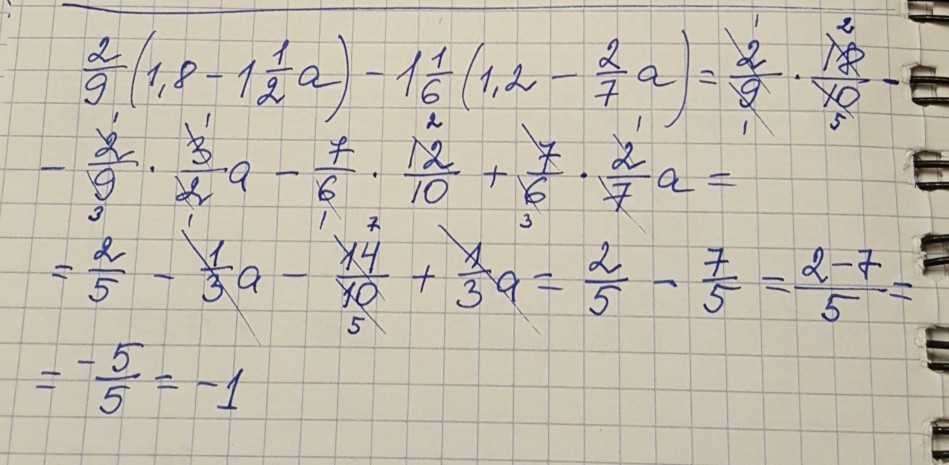 2/9 (1,8 - 1 1/2 a) - 1 1/6 (1,2 - 2/7 a) = 2/9 · 18/10 -
- 2/9 · 3/2 a - 7/6 · 12/10 + 7/6 · 2/7 a =
= 2/5 - 1/3 a - 14/10 + 1/3 a = 2/5 - 7/5 = (2-7)/5 =
= -5/5 = -1